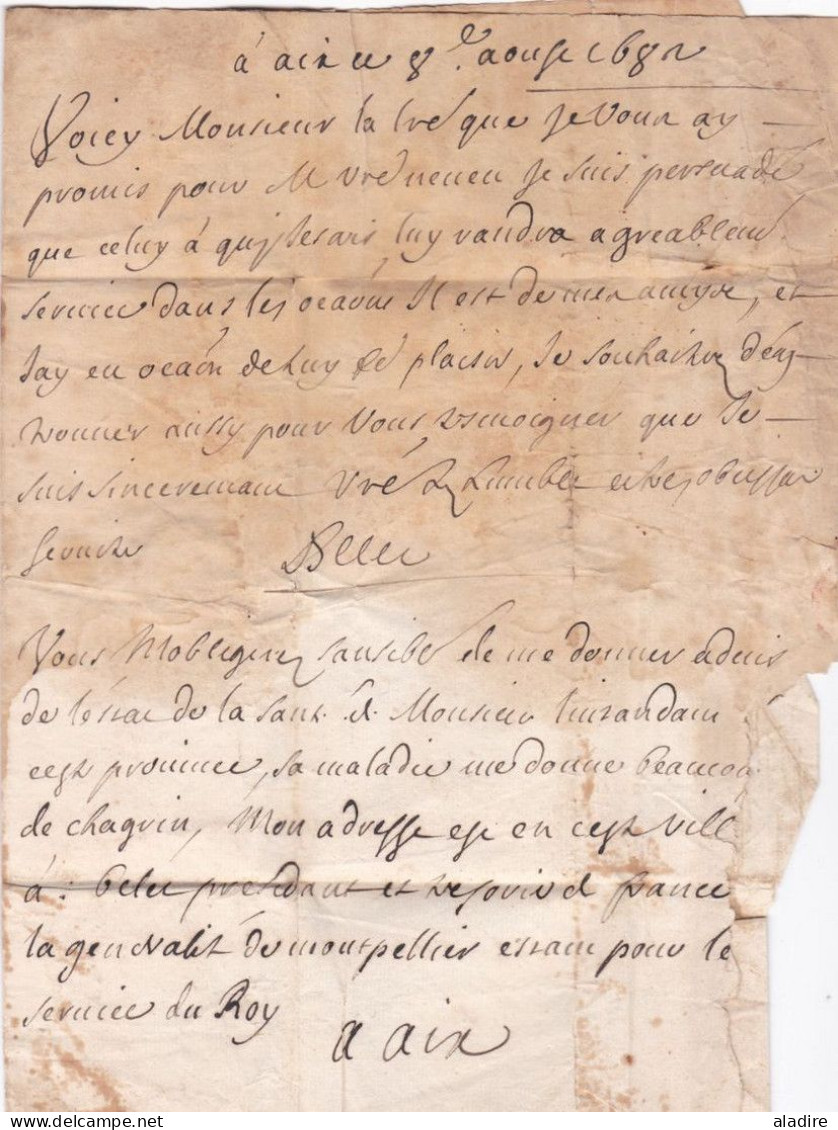 à aix ce 8e. aoust 1682
Voicy Monsieur la lré que Je vous ay
promis pour M vré neveu Je suis persuadé
que celuy à qui Jescris luy randra agreablemt
service dans les ocaôns Il est de mes amys, et
Jay eu ocaôn de luy plaisir, Je souhaitte d'en
trouver aussy pour Vous tesmoigner que Je
suis sinceremant Vré tres humble et tres obeissant
servite
Vous Mobligerez sansible de me donner advis
de lestat de la santé de Monsieur lintandant
ceste province, sa maladie me donne beaucou
de chagrin, Mon adresse est en ceste ville
à : presidant et tresorier de france
la generalité de montpellier estant pour le
service du Roy
a aix
aladire